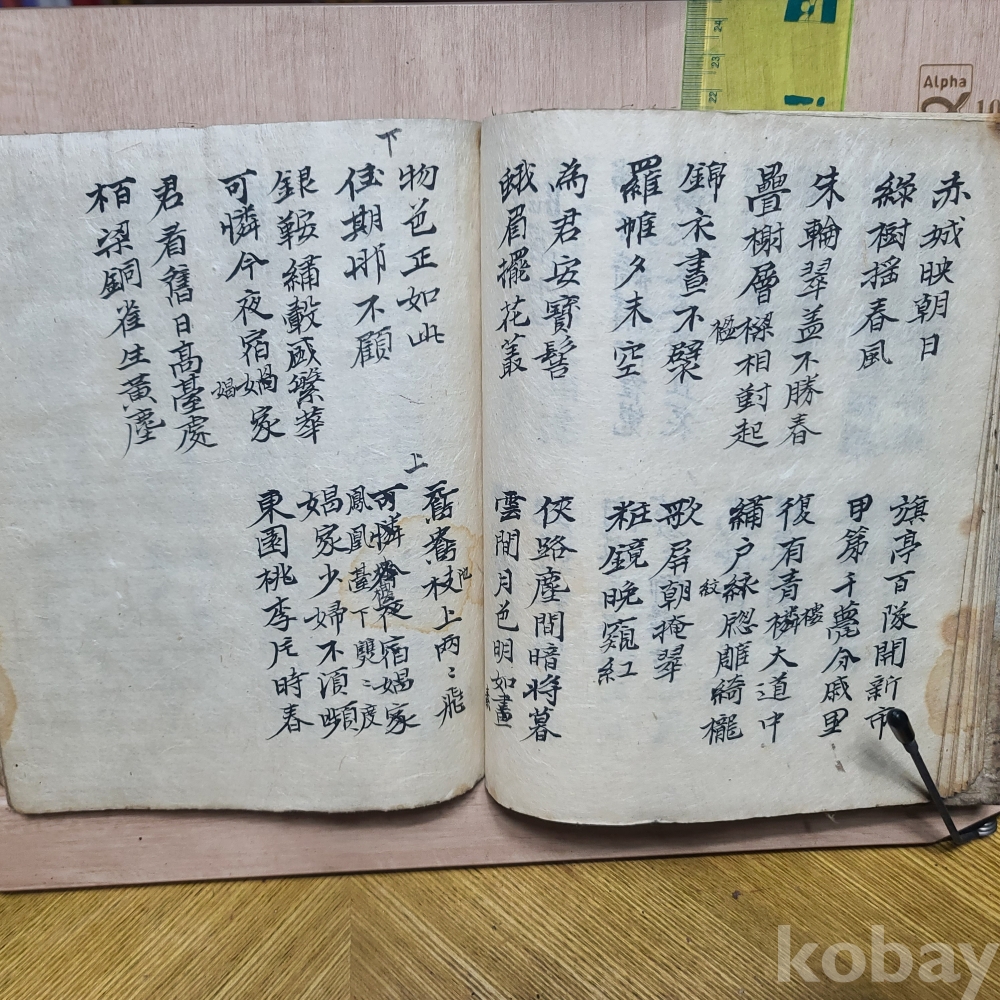 赤城映朝日
綠樹搖春風
旗亭百隊開新市
甲第千甍分戚里
朱輪翠盖不勝春
疊榭層樑相對起
楹
復有青樓大道中
樓
繡户綠窓雕綺櫳
紋
錦衣晝不襞
羅帷夕未空
歌屏朝掩翠
粧鏡晚窺紅
為君安寶髻
蛾眉擺花叢
俠路塵間暗將暮
雲間月色明如畫
素
下
物色正如此
佳期那不顧
上
鴛鴦枝上兩〻飛
池
可憐今夜宿娼家
鳳凰臺下雙〻度
銀鞍繡轂盛繁華
可憐今夜宿媧家
娼
娼家少婦不湏嚬
東園桃李片時春
君看舊日高臺處
栢梁銅雀生黃塵
Alpha
10
24
23
22
kobay